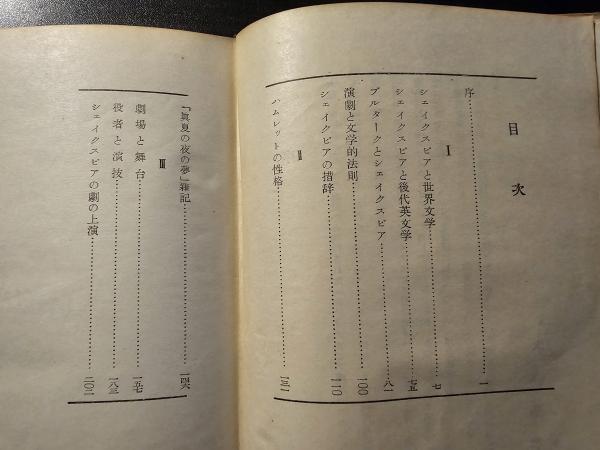 目次
序……一
Ⅰ
シェイクスピアと世界文学……七
シェイクスピアと後代英文学……七五
プルタークとシェイクスピア……八一
演劇と文学的法則……一〇〇
シェイクピアの措辞……一一〇
Ⅱ
ハムレットの性格……一三一
「真夏の夜の夢」雑記……一四六
Ⅲ
劇場と舞台……一五七
役者と演技……一八三
シェイクスピアの劇の上演……二〇二